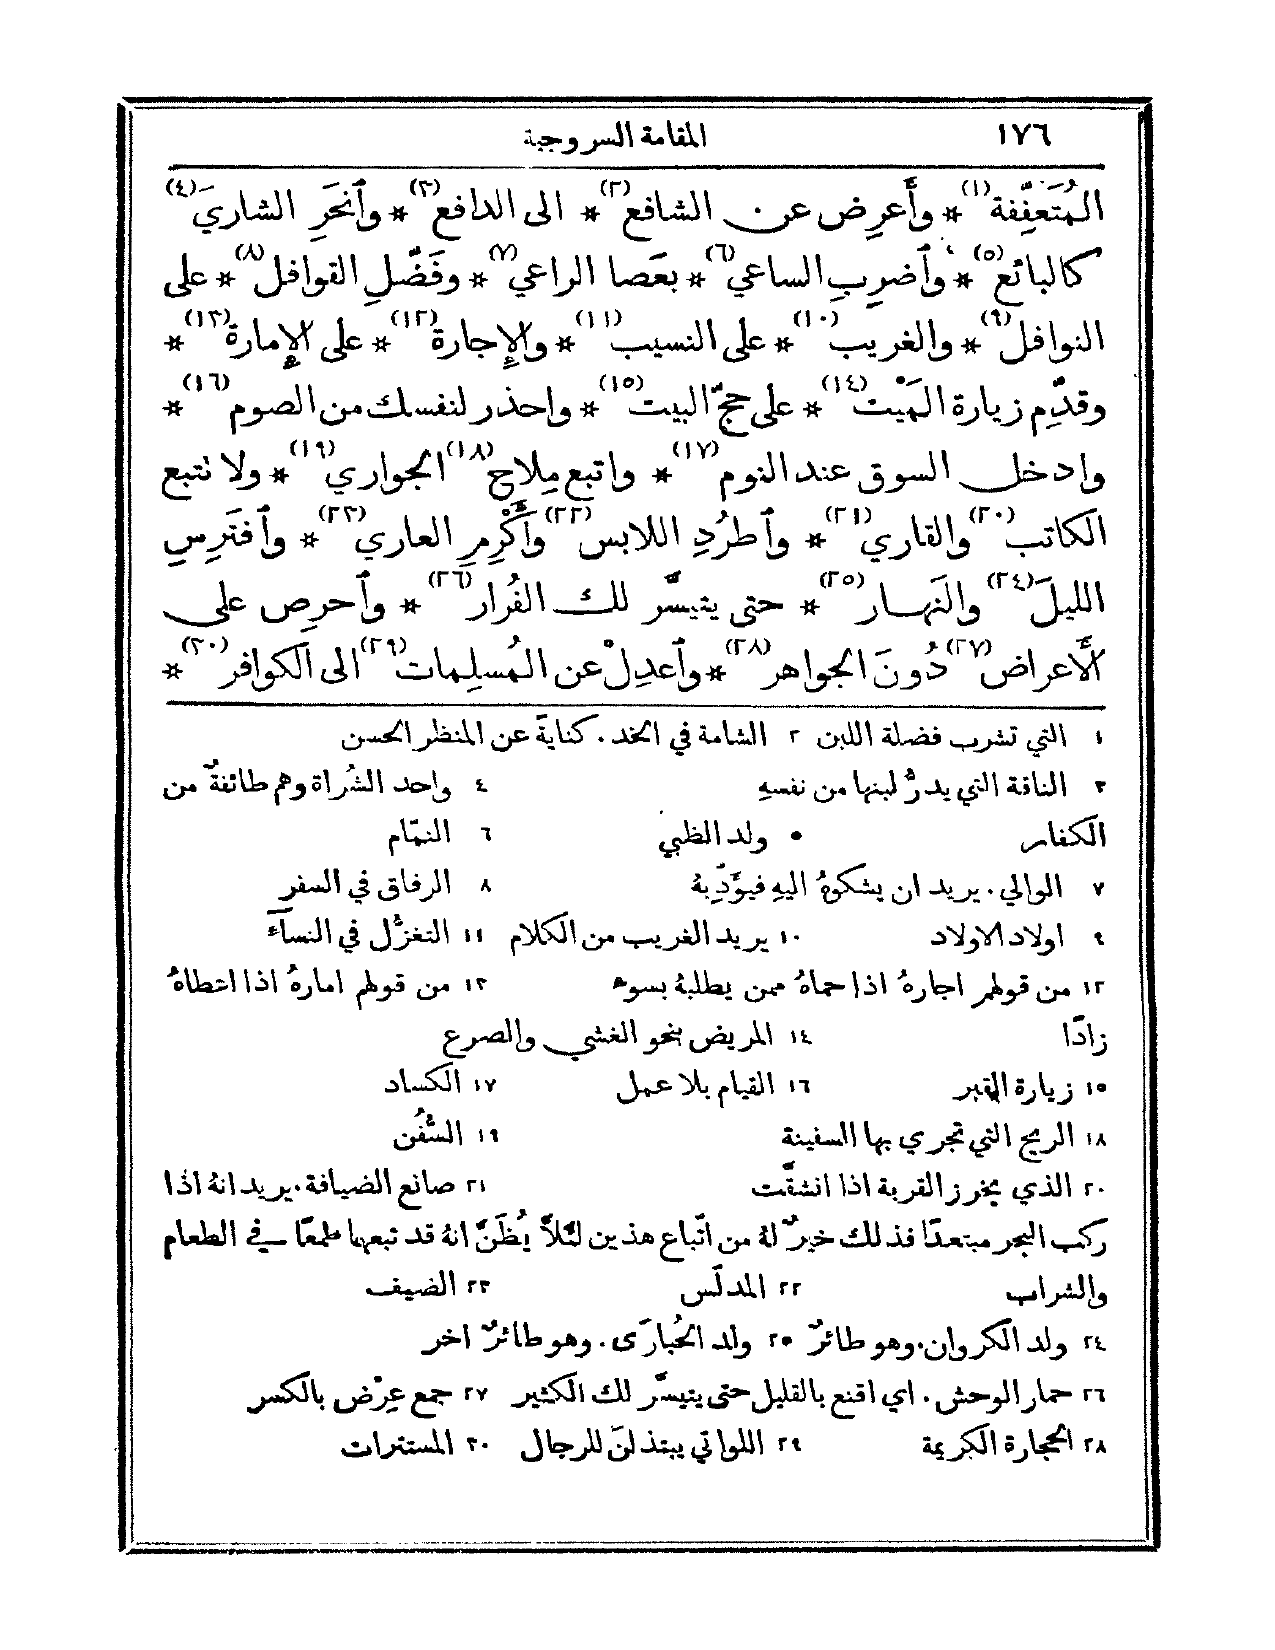 ١٧٦ المقامة السروجية
المُتَعفِّفة(١) * وأَعرِض عن الشافع(٢) * الى الدافع(٣) * وٱنحَرِ الشاريَ(٤)
كالبائع(٥) * وٱضرِبِ الساعي(٦) * بعَصا الراعي(٧) * وفَضِّلِ القوافل(٨) * على
النوافل(٩) * والغريب(١٠) * على النسيب(١١) * والإِجارة(١٢) * على الإِمارة(١٣) *
وقدِّم زيارة المَيْت(١٤) * على حجّ البيت(١٥) * واحذر لنفسك من الصوم(١٦) *
وادخل السوق عند النوم(١٧) * واتبع مِلاح(١٨) الجواري(١٩) * ولا نتبع
الكاتب(٢٠) والقاري(٢١) * وٱطرُدِ اللابس(٢٢) وأَكْرِمِ العاري(٢٣) * وٱفتَرِسِ
الليلَ(٢٤) والنهار(٢٥) * حتى يتيسَّر لك الفُرار(٢٦) * وٱحرِص على
الأَعراض(٢٧) دُونَ الجواهر(٢٨) * وٱعدِلْ عن المُسلِمات(٢٩) الى الكوافر(٣٠) *
١ التي تشرب فضلة اللبن ٢ الشامة في الخد . كنايةً عن المنظر الحسن
٣ الناقة التي يدرُّ لبنها من نفسهِ ٤ واحد الشُراة وهم طائفةٌ من
الكفار ٥ ولد الظبي ٦ النمّام
٧ الوالي . يريد ان يشكوهُ اليهِ فيؤَدِّبهُ ٨ الرفاق في السفر
٩ اولاد الاولاد ١٠ يريد الغريب من الكلام ١١ التغزُّل في النسآء
١٢ من قولهم اجارهُ اذا حماهُ ممن يطلبهُ بسوء ١٣ من قولهم امارهُ اذا اعطاهُ
زادًا ١٤ المريض بنحو الغشي والصرع
١٥ زيارة القبر ١٦ القيام بلا عمل ١٧ الكساد
١٨ الريح التي تجري بها السفينة ١٩ السُّفُن
٢٠ الذي يخرز القربة اذا انشقَّت ٢١ صانع الضيافة . يريد انهُ اذا
ركب البحر مبتعدًا فذلك خيرٌ لهُ من اتّباع هذين لئلاَّ يُظَنَّ انهُ قد تبعهما طمعًا في الطعام
والشراب ٢٢ المدلّس ٢٣ الضيف
٢٤ ولد الكروان . وهو طائرٌ ٢٥ ولد الحُبارَى . وهو طائرٌ اخر
٢٦ حمار الوحش . اي اقنع بالقليل حتى يتيسَّر لك الكثير ٢٧ جمع عِرْض بالكسر
٢٨ الحجارة الكريمة ٢٩ اللواتي يبتذلنَ للرجال ٣٠ المستترات